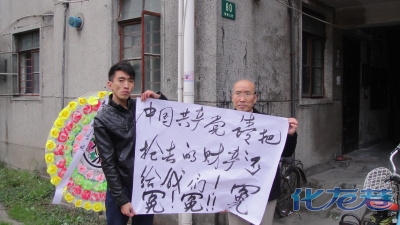 80
中国共产党请把
抢去的财产还
给我们!
冤!冤!!冤
化龙巷